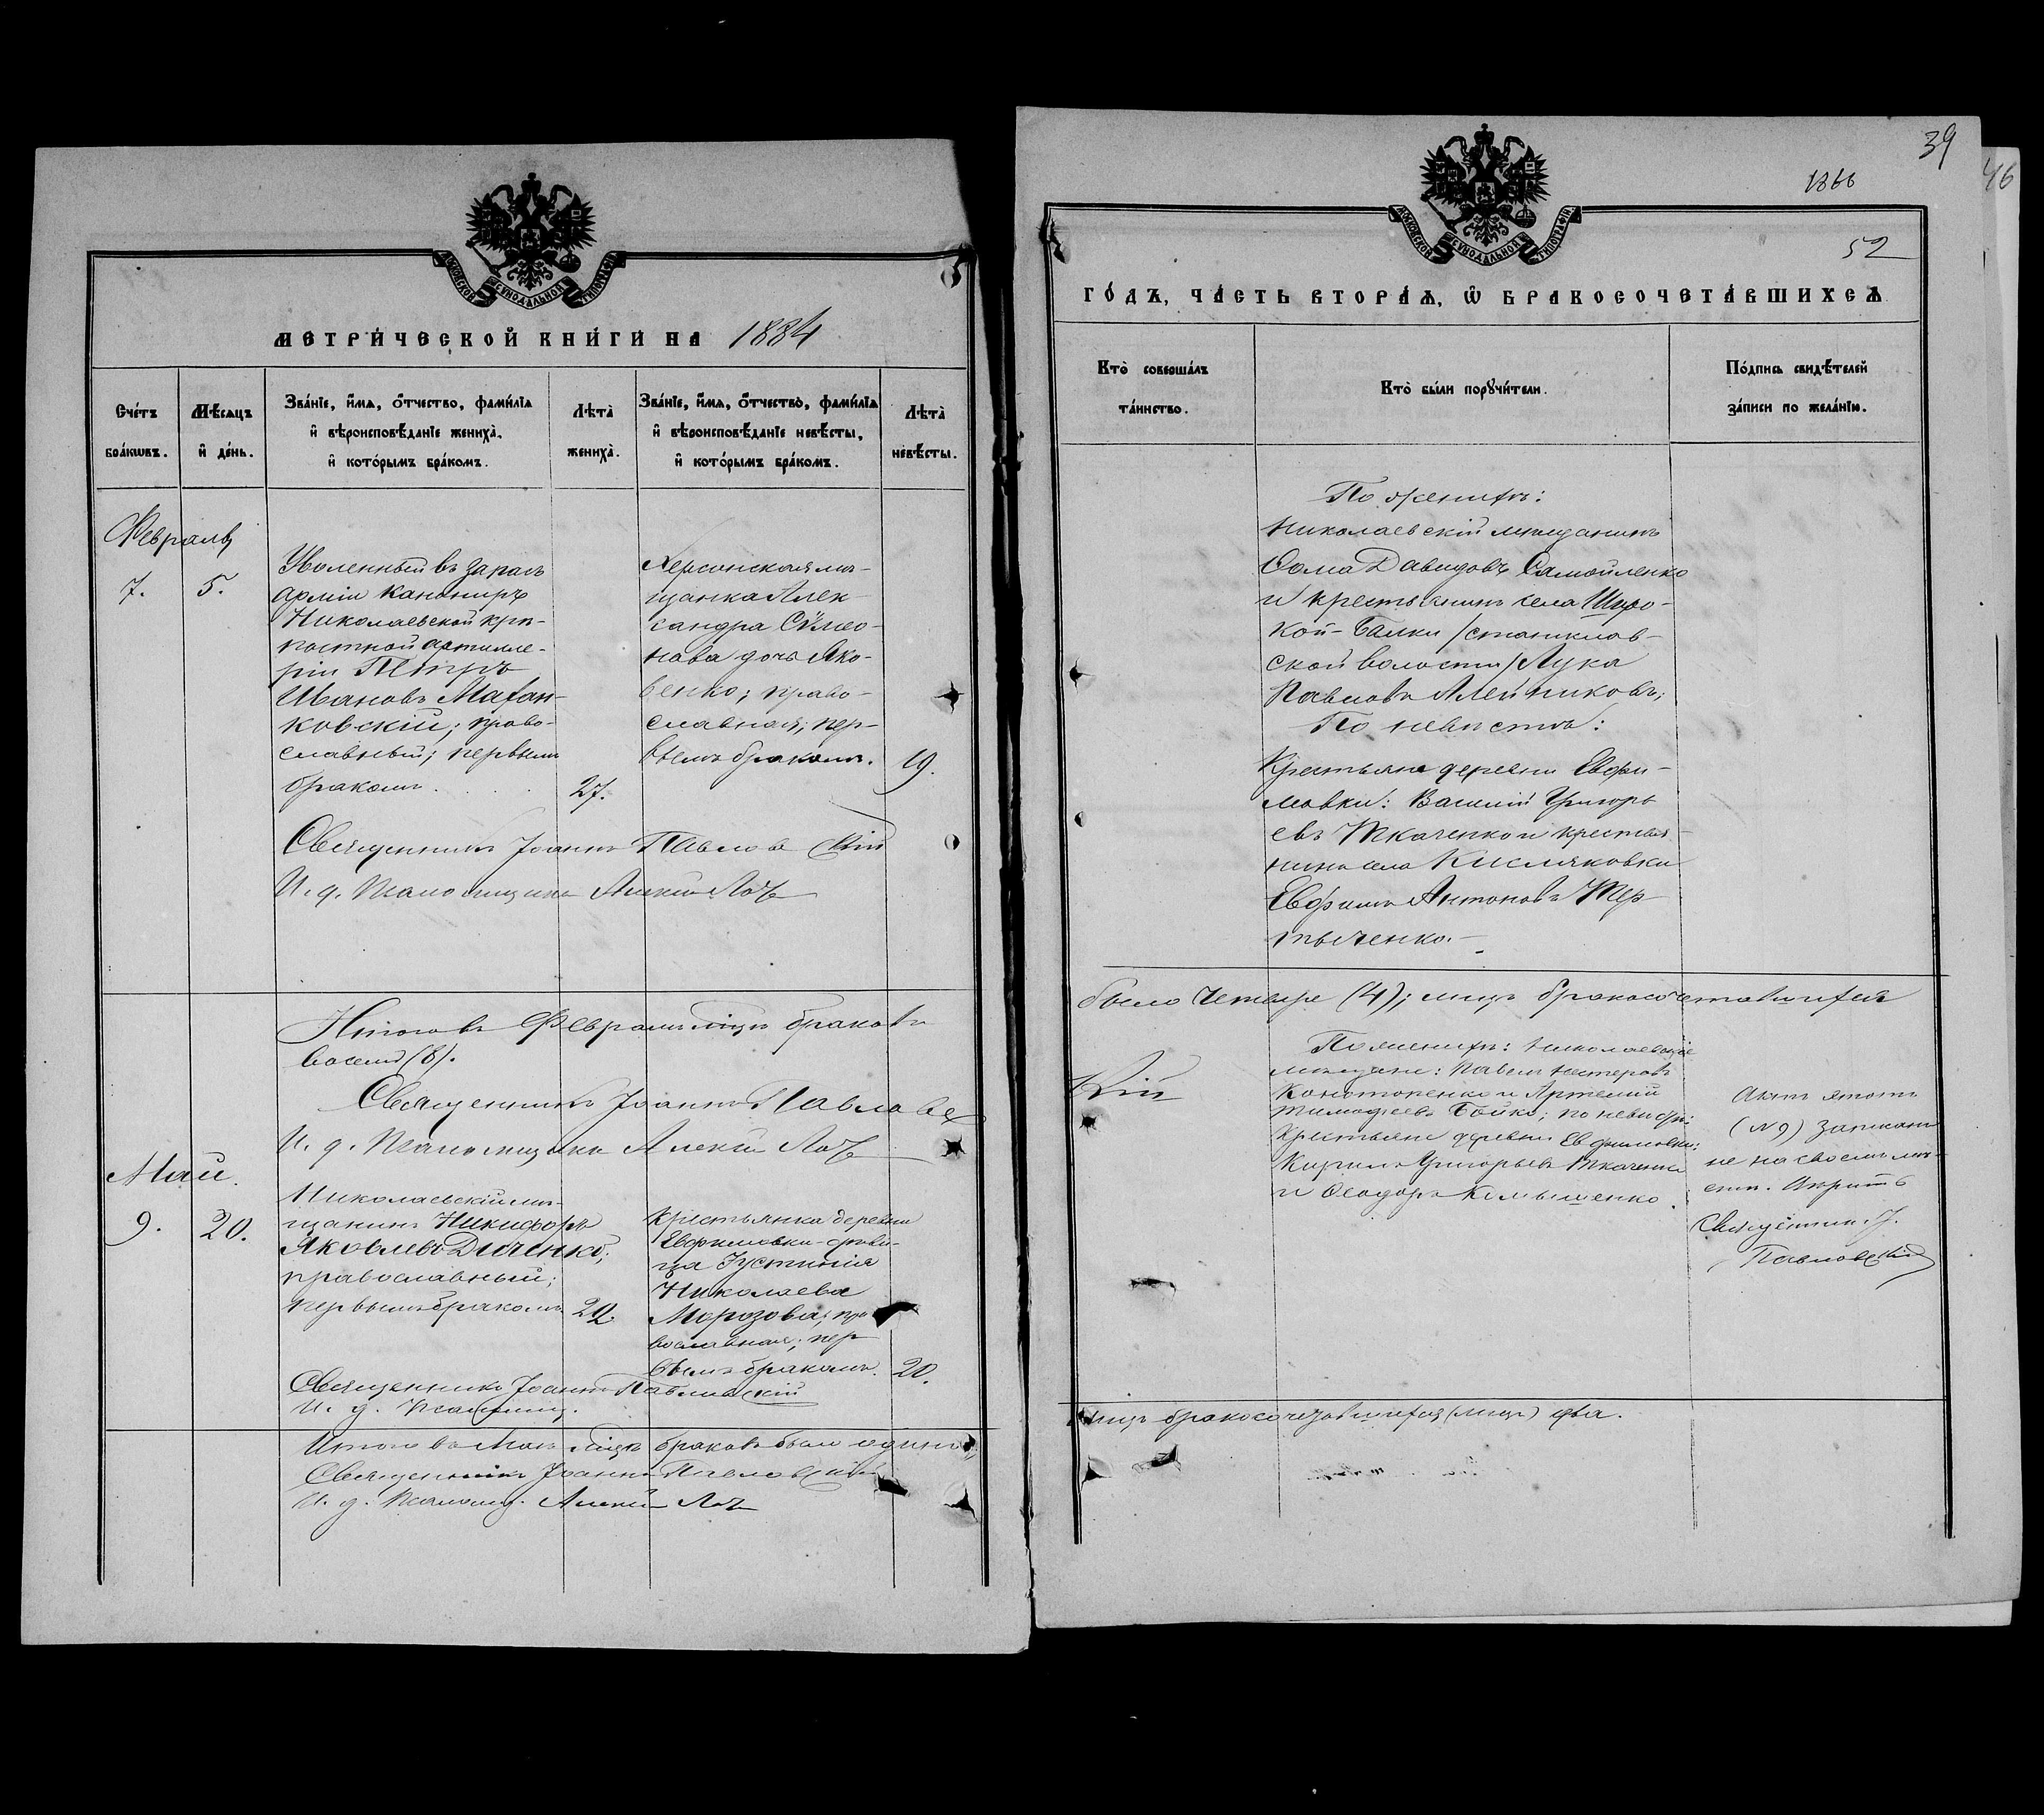 МОСКОВСКОЙ СУНОДАЛЬНОЙ ТИПОГРАФІИ
МЕТРИ́ЧЕСКОЙ КНИ́ГИ НА 1884
Сче́тъ бра́кѡвъ.
Мѣ́сяцъ и҆ де́нь.
Зва́нїе, и҆́мя, ѻ҆́тчество, фами́лїя
и҆ вѣроисповѣ́данїе жениха̀,
и҆ кото́рымъ бра́комъ.
Лѣ́та̀ жениха̀.
Зва́нїе, и҆́мя, ѻ҆́тчество, фами́лїя
и҆ вѣроисповѣ́данїе невѣ́сты,
и҆ кото́рымъ бра́комъ.
Лѣ́та̀ невѣ́сты.
Февраль
7.
5.
Уволенный въ запасъ
арміи канониръ
Николаевской крѣ-
постной артилле-
ріи Петръ
Ивановъ Махан-
ковскій; право-
славный; первымъ
бракомъ.
27.
Херсонская мѣ-
щанка Алек
сандра Сѵмео-
нова дочь Яко-
венко; право-
славная; пер-
вымъ бракомъ.
19.
Священникъ Іоаннъ Павловскій
И. д. Псаломщика Алексій
Итого въ Февралѣ мѣсяцѣ браковъ
восемь (8).
Священникъ Іоаннъ Павловс
И. д. Псаломщика Алексій
Май.
9.
20.
Николаевскій мѣ-
щанинъ Никифоръ
Яковлевъ Диченко;
православный;
первымъ бракомъ
22.
Крестьянка деревни
Евфимовки - дѣви-
ца Іустинія
Николаева
Морозова; пра
вославная; пер
вымъ бракомъ.
20.
Священникъ Іоаннъ Павловскій
И. д. Псаломщ.
Итого въ Маѣ мѣсяцѣ браковъ было одинъ
Священникъ Іоаннъ Павловскій
И. д. Псаломщ. Алексій
39
46
1866
52
МОСКОВСКОЙ СУНОДАЛЬНОЙ ТИПОГРАФІИ
ГО́ДЪ, ЧА́СТЬ ВТОРА́Я, Ѡ҆ БРАКОСОЧЕТА́ВШИХСЯ
Кто̀ соверша́лъ
та́инство.
Кто̀ бы́ли порꙋчи́тели.
По́дпись свидѣ́телей
за́писи по жела́нїю.
По женихѣ:
Николаевскій мѣщанинъ
Ѳома Давидовъ Самойленко
и крестьянинъ села Широ-
кой-Балки /станислав-
ской волости/ Лука
Павловъ Алейниковъ;
По невѣстѣ:
Крестьяне деревни Евфи-
мовки: Василій Григорь
евъ Ткаченко и крестья-
нинъ села Кисляковки
Евфимъ Антоновъ Тер
тыченко.
было четыре (4); лицъ бракосочетавшихся
кій
По женихѣ: Николаевскіе
мѣщане: Павелъ Нестеровъ
Конотопенко и Артемій
Тимофеевъ Бойко; по невѣстѣ:
Крестьяне деревни Евфимовки:
Кирилъ Григорьевъ Ткаченко
и Ѳеодоръ
Актъ этотъ
(№ 9) записанъ
не на своемъ мѣ-
стѣ.
Священник. І.
Павловскій
лицъ бракосочетавшихся (лицъ) два.